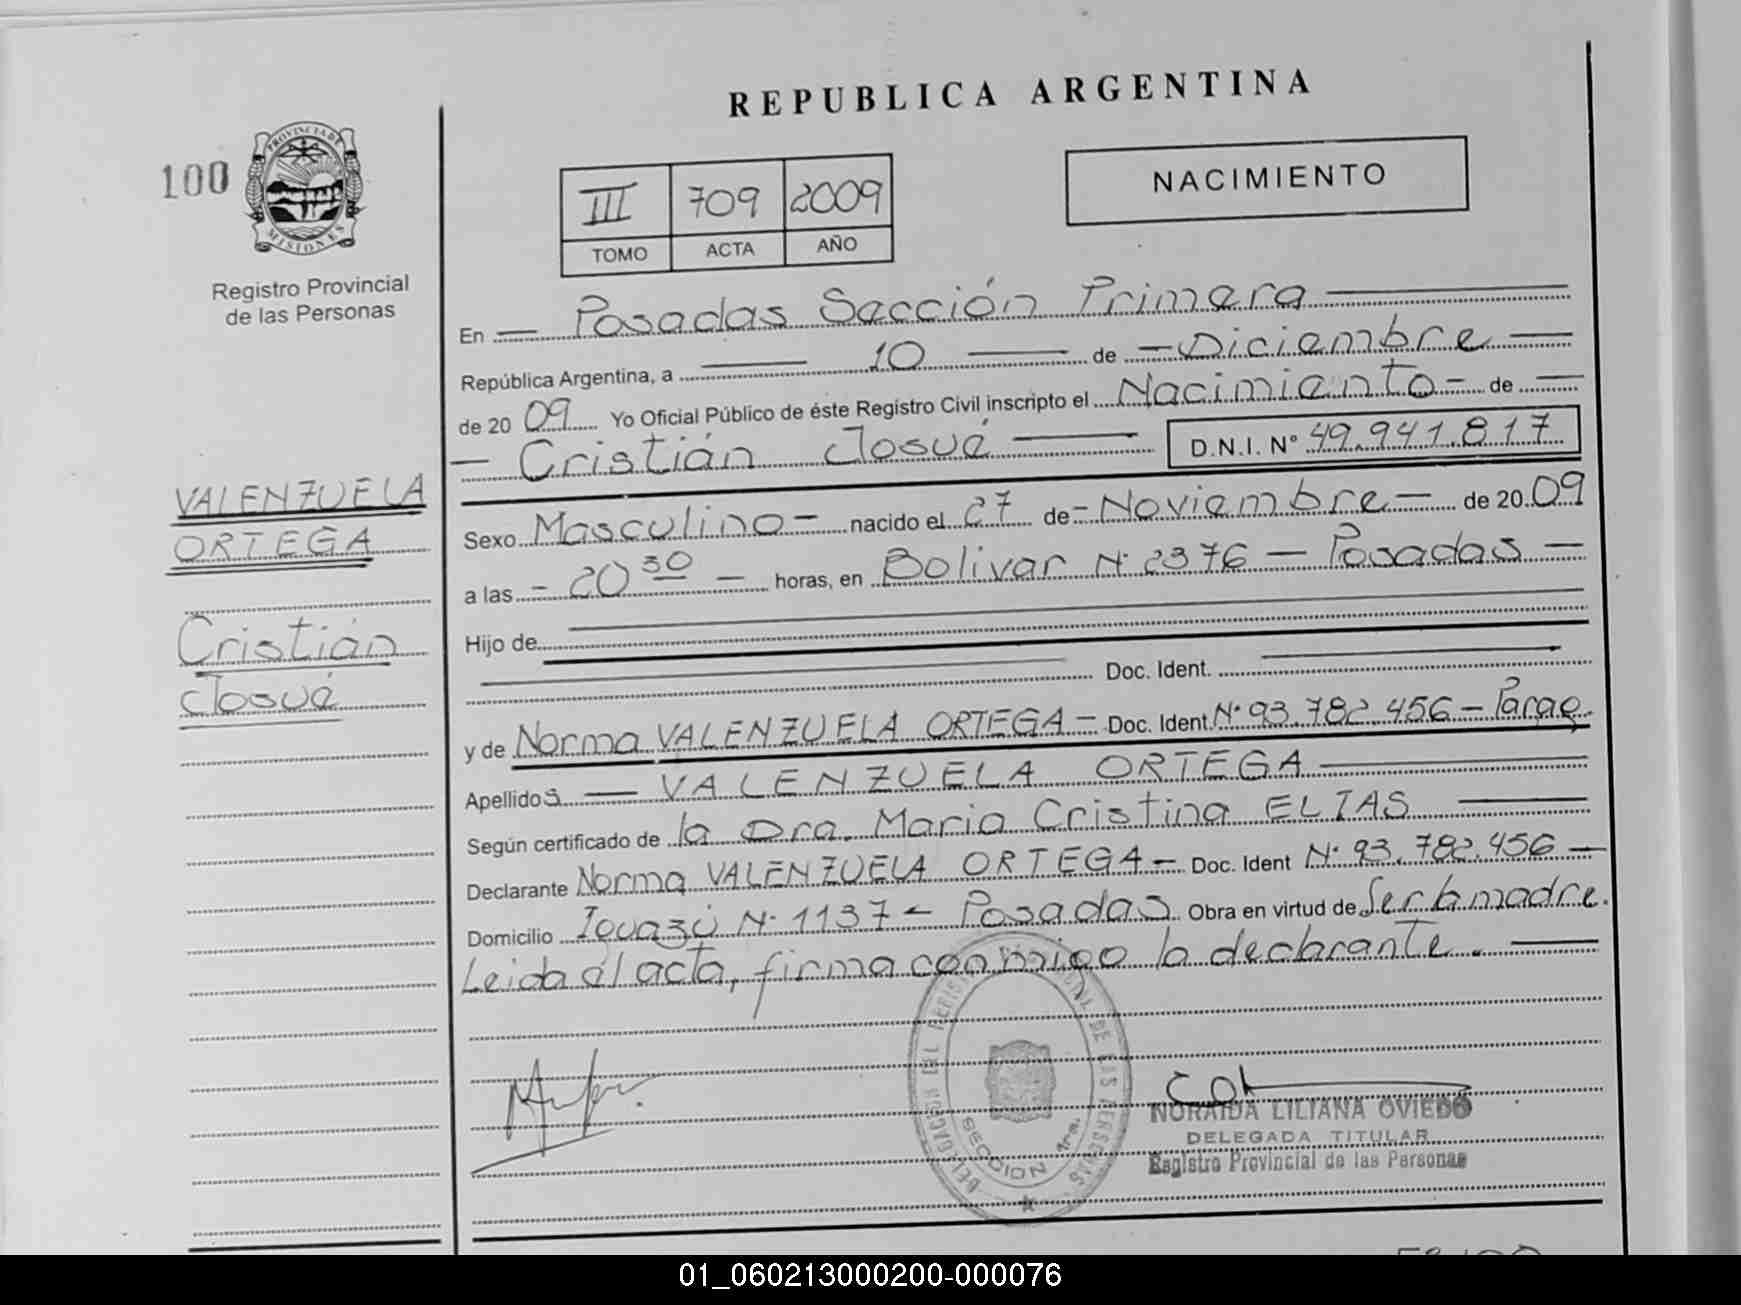 REPUBLICA ARGENTINA
100
PROVINCIA DE
MISIONES
Registro Provincial
de las Personas
III 709 2009
TOMO ACTA AÑO
NACIMIENTO
En — Posadas Sección Primera —
República Argentina, a — 10 — de — Diciembre —
de 2009 Yo Oficial Público de éste Registro Civil inscripto el Nacimiento — de —
— Cristián Josué — D.N.I. N° 49.941.817
VALENZUELA
ORTEGA
Cristián
Josué
Sexo Masculino — nacido el 27 de — Noviembre — de 2009
a las — 20 30 — horas, en Bolivar N° 2376 — Posadas —
Hijo de
Doc. Ident.
y de Norma VALENZUELA ORTEGA — Doc. Ident. N° 93.782.456 — Parag.
Apellidos — VALENZUELA ORTEGA —
Según certificado de la Dra. Maria Cristina ELIAS —
Declarante Norma VALENZUELA ORTEGA — Doc. Ident N° 93.782.456 —
Domicilio Iguazú N° 1137 — Posadas Obra en virtud de Ser la madre.
Leida el acta, firma conmigo la declarante. —
DELEGACION DEL REGISTRO DE LAS PERSONAS
SECCION 1ra.
NORAIDA LILIANA OVIEDO
DELEGADA TITULAR
Registro Provincial de las Personas
01_060213000200-000076